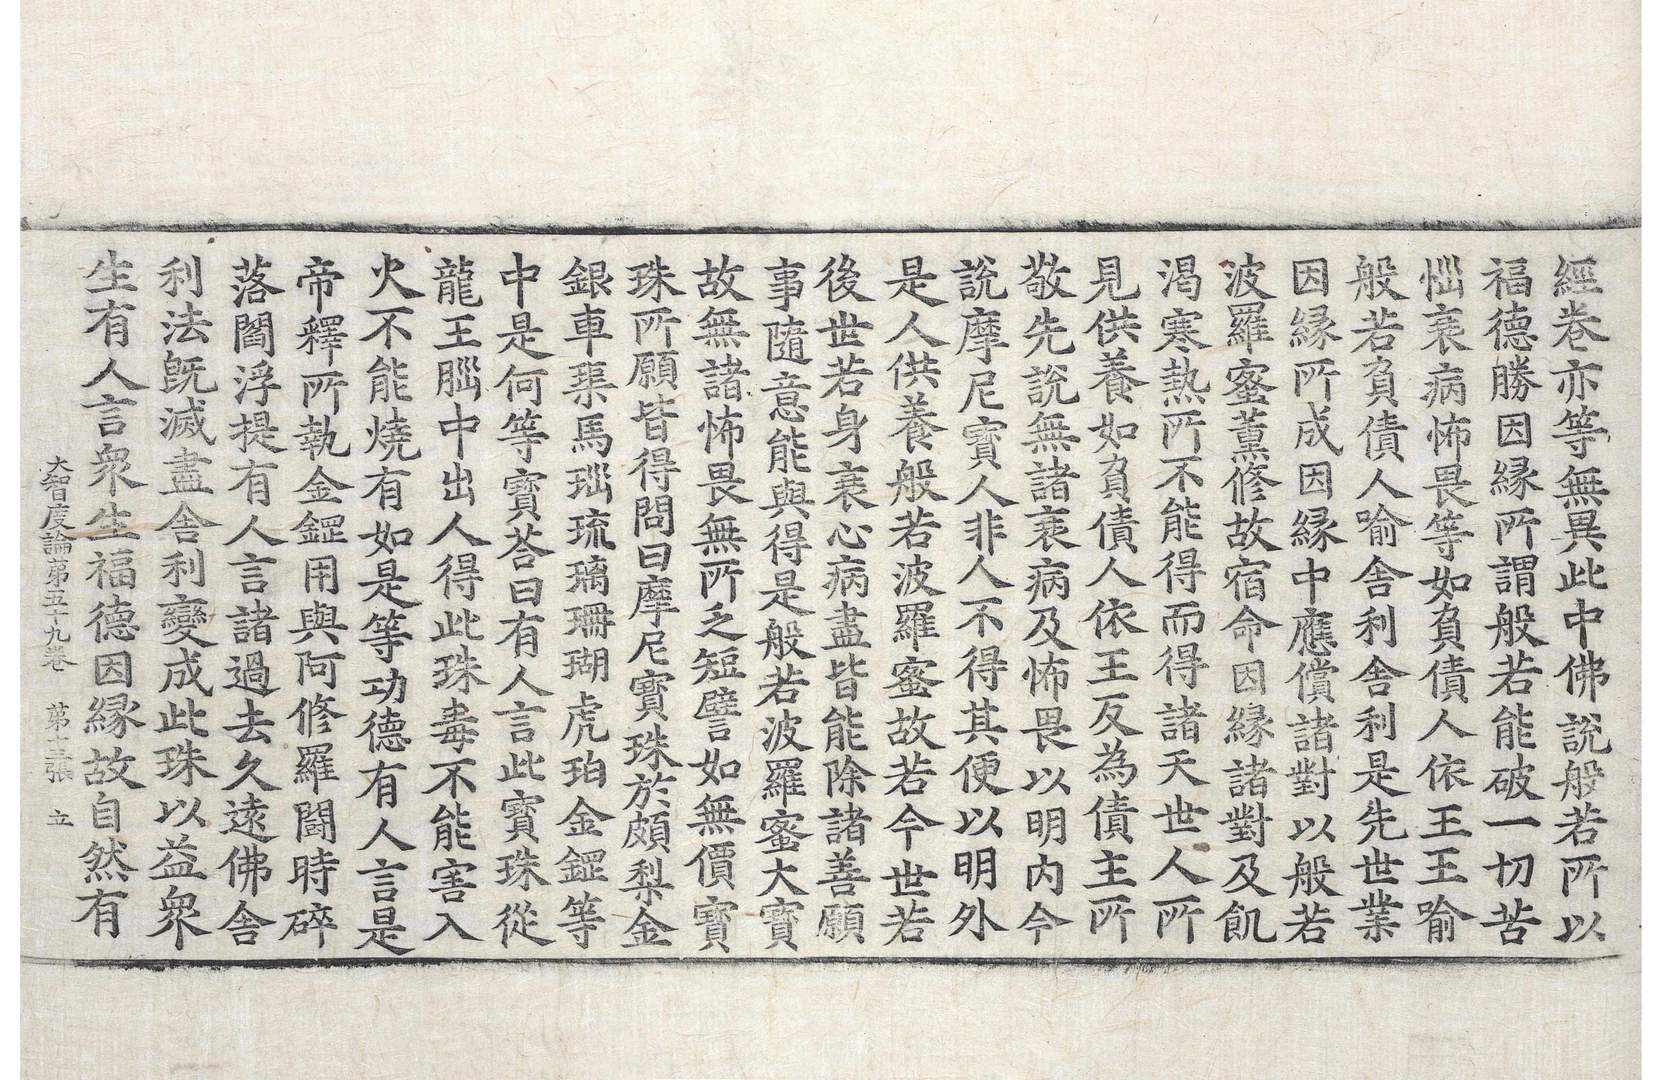 經卷亦等無異此中佛說般若所以
福德勝因緣所謂般若能破一切苦
惱衰病怖畏等如負債人依王王喻
般若負債人喻舍利舍利是先世業
因緣所成因緣中應償諸對以般若
波羅蜜薰修故宿命因緣諸對及飢
渴寒熱所不能得而得諸天世人所
見供養如負債人依王反為債主所
敬先說無諸衰病及怖畏以明內今
說摩尼寶人非人不得其便以明外
是人供養般若波羅蜜故若今世若
後世若身衰心病盡皆能除諸善願
事隨意能與得是般若波羅蜜大寶
故無諸怖畏無所乏短譬如無價寶
珠所願皆得問曰摩尼寶珠於頗梨金
銀車璖馬瑙琉璃珊瑚虎珀金鋥等
中是何等寶荅曰有人言此寶珠從
龍王腦中出人得此珠毒不能害入
火不能燒有如是等功德有人言是
帝釋所執金鋥用與阿修羅鬪時碎
落閻浮提有人言諸過去久遠佛舍
利法旣滅盡舍利變成此珠以益衆
生有人言衆生福德因緣故自然有
大智度論第五十九卷 第十三張 立